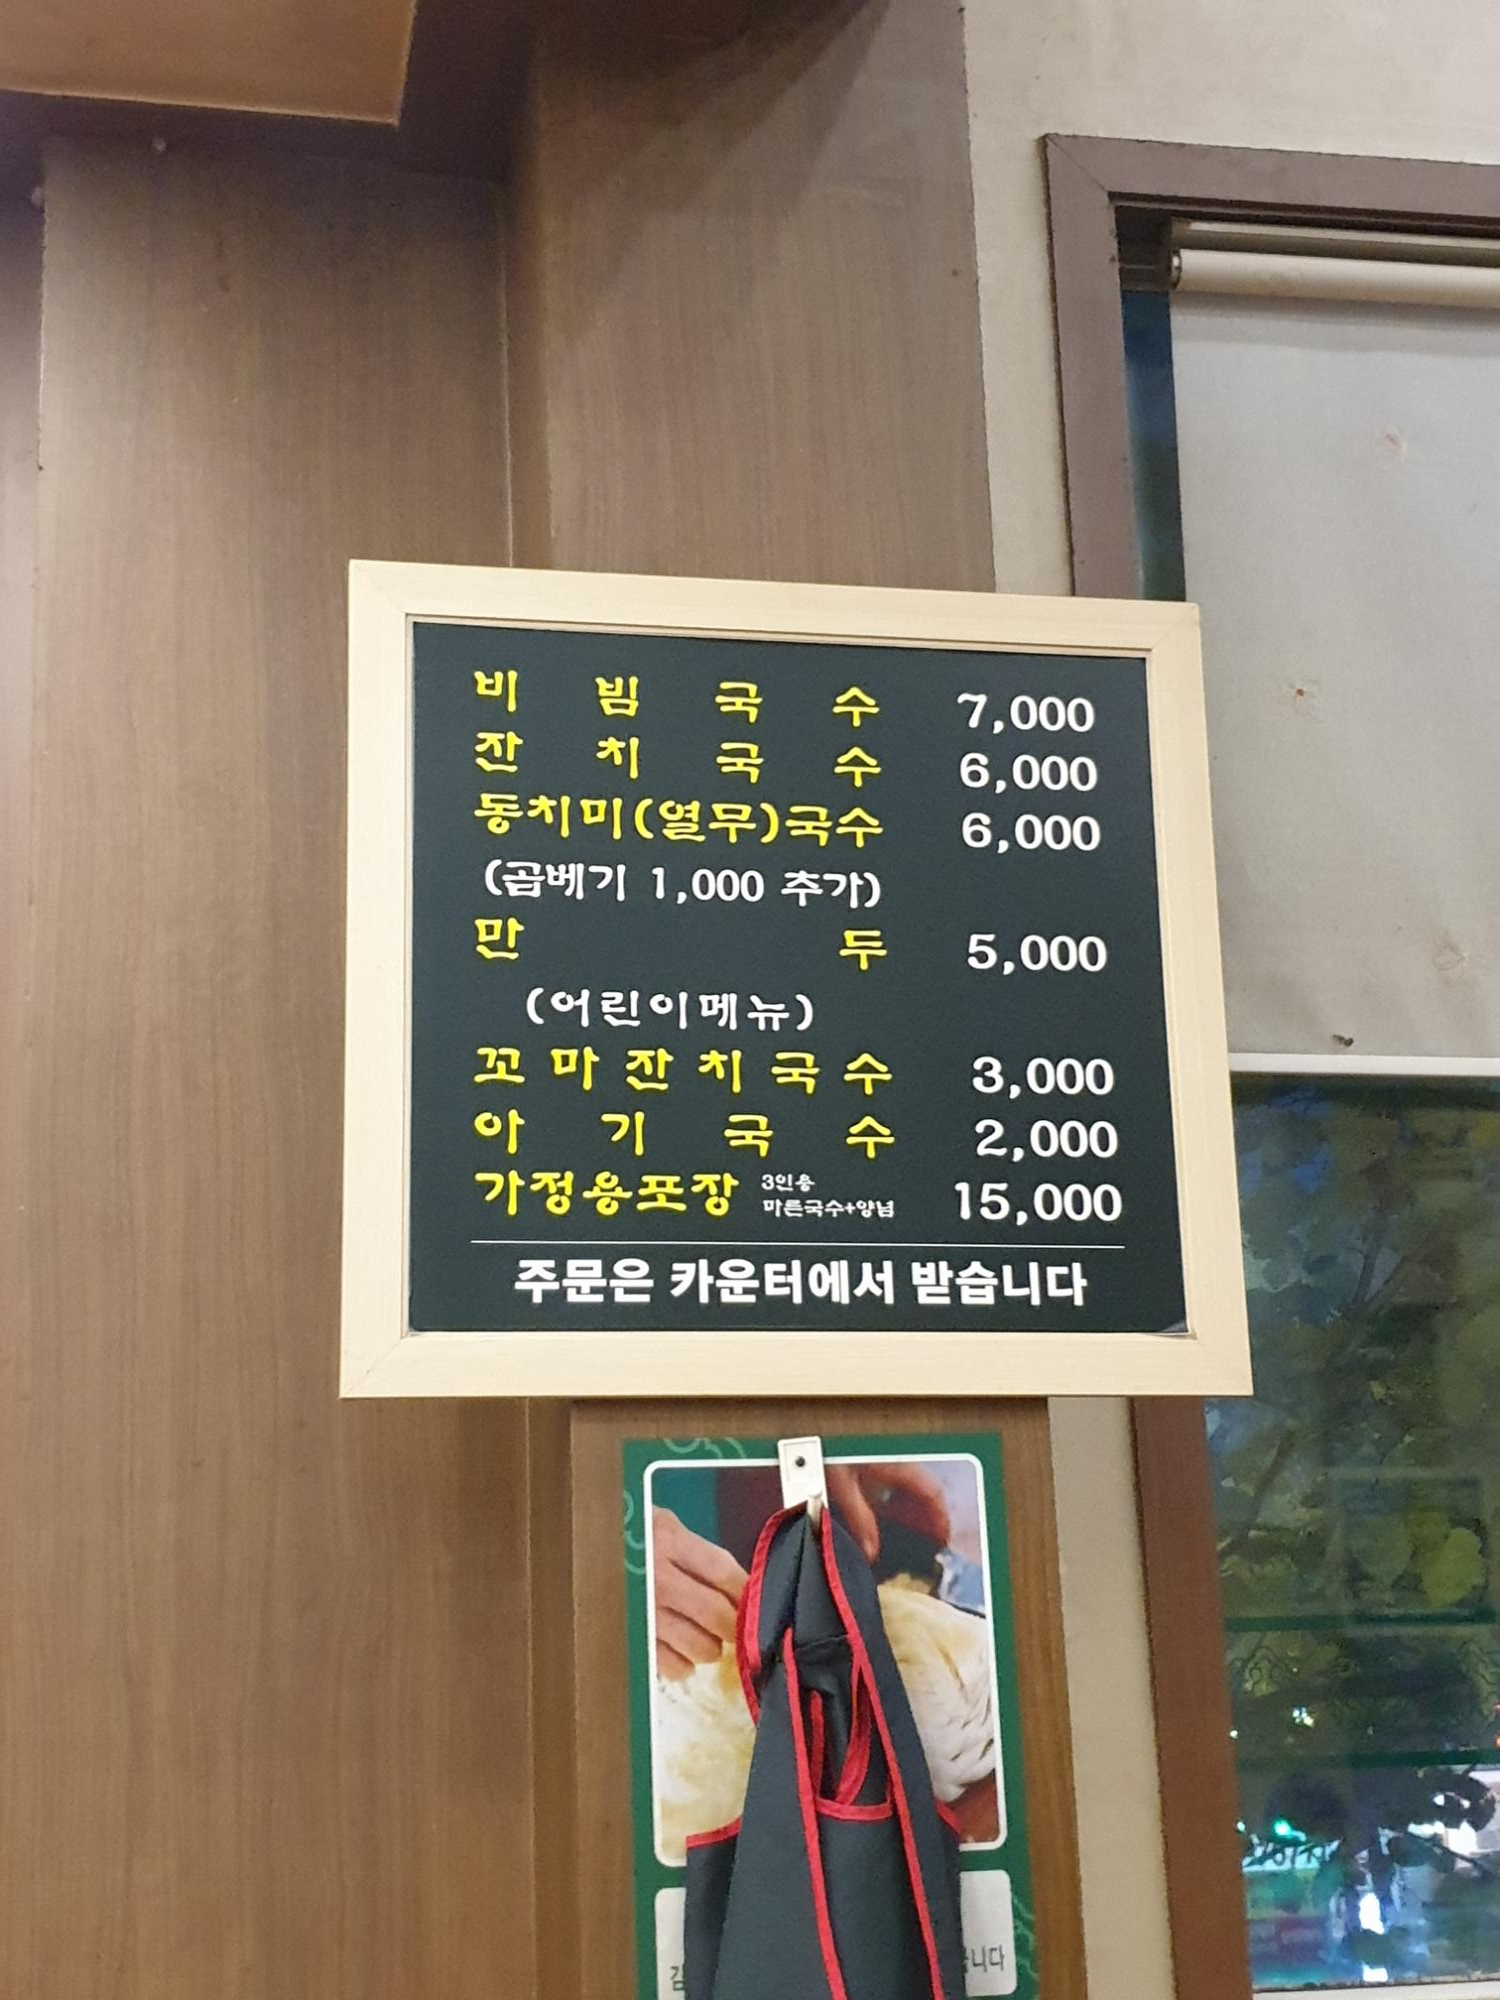 비빔국수 7,000
잔치국수 6,000
동치미(열무)국수 6,000
(곱베기 1,000 추가)
만두 5,000
(어린이메뉴)
꼬마잔치국수 3,000
아기국수 2,000
가정용포장 3인용 마른국수+양념 15,000
주문은 카운터에서 받습니다